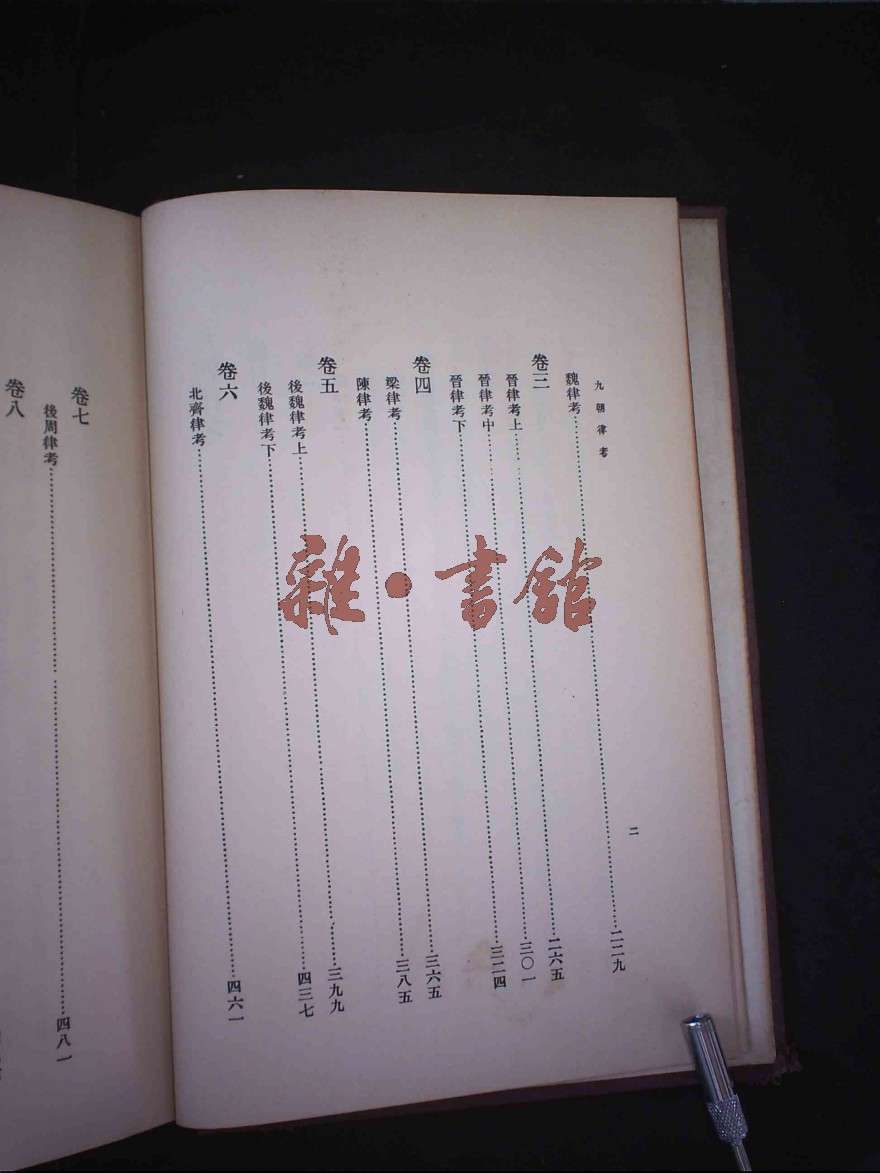 九朝律考
二
魏律考 二二九
卷三
晉律考上 二六五
晉律考中 三〇一
晉律考下 三二四
卷四
梁律考 三六五
陳律考 三八五
卷五
後魏律考上 三九九
後魏律考下 四三七
卷六
北齊律考 四六一
卷七
後周律考 四八一
卷八
雜·書館